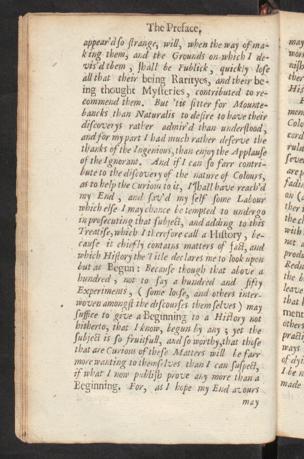 The Preface,
appear'd so strange, will, when the way of ma-
king them, and the Grounds on which I de-
vis'd them, shall be Publick, quickly lose
all that their being Rarityes, and their be-
ing thought Mysteries, contributed to re-
commend them. But 'tis fitter for Mounte-
bancks than Naturalis to desire to have their
discoverys rather admir'd than understood,
and for my part I had much rather deserve the
thanks of the Ingenious, than enjoy the Applause
of the Ignorant. And if I can so farr contri-
bute to the discovery of the nature of Colours,
as to help the Curious to it, I shall have reach'd
my End, and sav'd my self some Labour
which else I may chance be tempted to undergo
in prosecuting that subject, and adding to this
Treatise, which I therefore call a History, be-
cause it chiefly contains matters of fact, and
which History the Title declares me to look upon
but as Begun: Because though that above a
hundred, not to say a hundred and fifty
Experiments, (some loose, and others inter-
woven amongst the discourses themselves) may
suffice to give a Beginning to a History not
hitherto, that I know, begun by any; yet the
subject is so fruitfull, and so worthy, that those
that are Curious of these Matters will be farr
more wanting to themselves than I can suspect,
if what I now publish prove any more than a
Beginning. For, as I hope my Endeavours
may